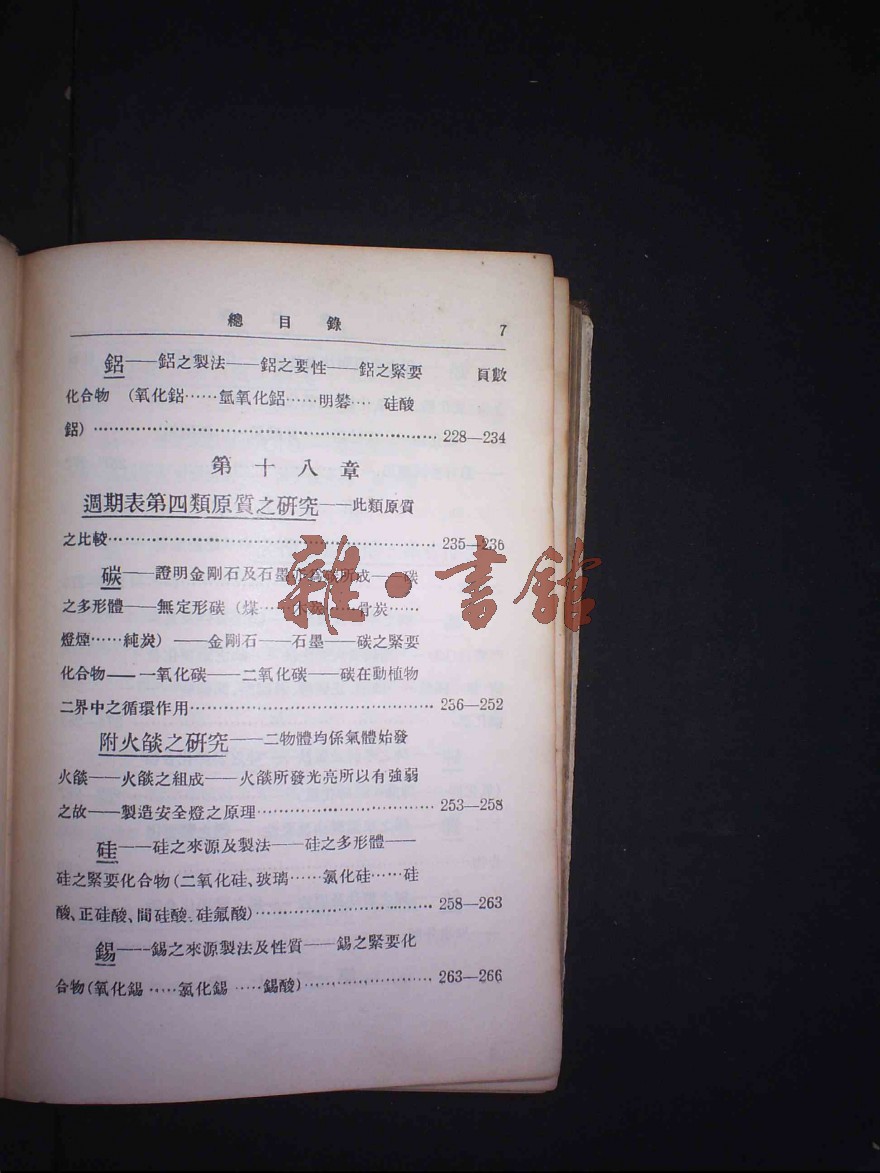 總目錄 7
鋁——鋁之製法——鋁之要性——鋁之緊要 頁數
化合物 (氧化鋁……氫氧化鋁……明礬… 硅酸
鋁)…………228—234
第十八章
週期表第四類原質之研究——此類原質
之比較…………235—236
碳——證明金剛石及石墨所成——碳
之多形體——無定形碳 (煤……骨炭……
燈煙……純炭) ——金剛石——石墨——碳之緊要
化合物——一氧化碳——二氧化碳——碳在動植物
二界中之循環作用…………236—252
附火燄之研究——二物體均係氣體始發
火燄——火燄之組成——火燄所發光亮所以有強弱
之故——製造安全燈之原理…………253—258
硅——硅之來源及製法——硅之多形體——
硅之緊要化合物(二氧化硅、玻璃……氯化硅……硅
酸、正硅酸、間硅酸、硅氟酸)…………258—263
錫——錫之來源製法及性質——錫之緊要化
合物(氧化錫……氯化錫……錫酸)…………263—266
雜·書館